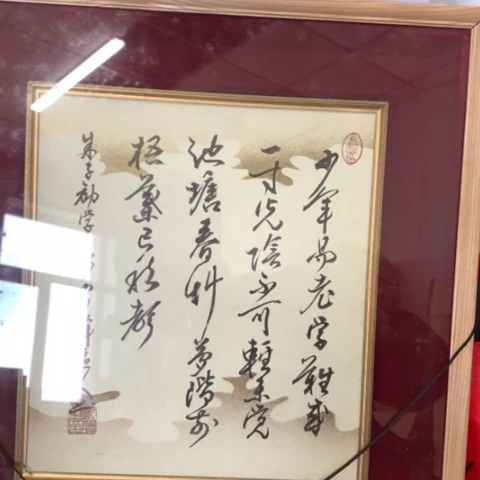 少年易老学難成
一寸光陰不可軽未覚
池塘春草夢階前
梧葉已秋声
朱子勧学